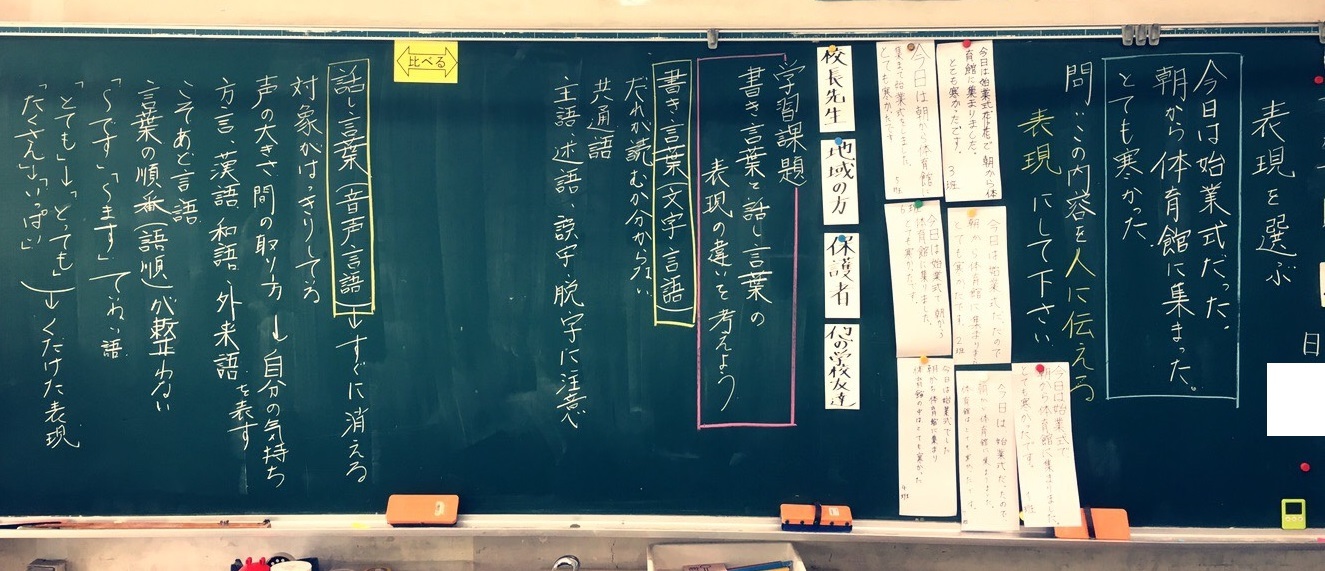 表現を選ぶ
日
今日は始業式だった。
朝から体育館に集まった。
とても寒かった。
問：この内容を人に伝える
表現にして下さい
今日は始業式で
朝から体育館に集まりました。
とても寒かったです。
今日は始業式だったので
朝から体育館に集まりました。
今日は始業式で朝から体
育館に集まりました。
とても寒かったです。
3班
今日は始業式だったので
朝から体育館に集まりました
とても寒かったです。2班
今日は朝から体育館に
集まって始業式をしました。
とても寒かったです
5班
6班
今日は始業式で朝から
体育館に集まりました。
とても寒かったです。
今日は始業式でした
朝から体育館に集まり
体育館の中はとても寒かった
4班
校長先生
地域の方
保護者
他の学校友達
学習課題
書き言葉と話し言葉の
表現の違いを考えよう
書き言葉（文字言語）
だれが読むか分からない
共通語
主語、述語、誤字、脱字に注意
比べる
話し言葉（音声言語）→すぐに消える
対象がはっきりしている
声の大きさ 間の取り方→自分の気持ち
を表す
方言、漢語、和語、外来語
こそあど言語
言葉の順番（語順）が整わない
「〜です」「〜ます」ていねい語
「とても」→「とっても」
「たくさん」→「いっぱい」→くだけた表現